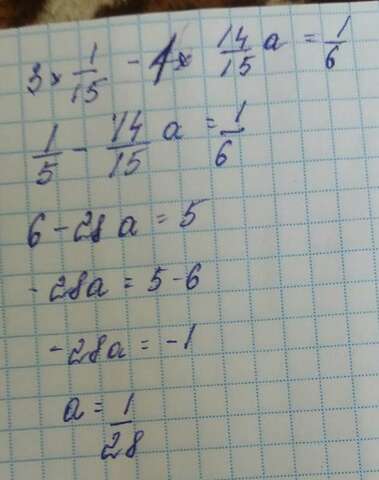 3 × 1/15 - 1 × 14/15 a = 1/6
1/5 - 14/15 a = 1/6
6 - 28a = 5
-28a = 5-6
-28a = -1
a = 1/28